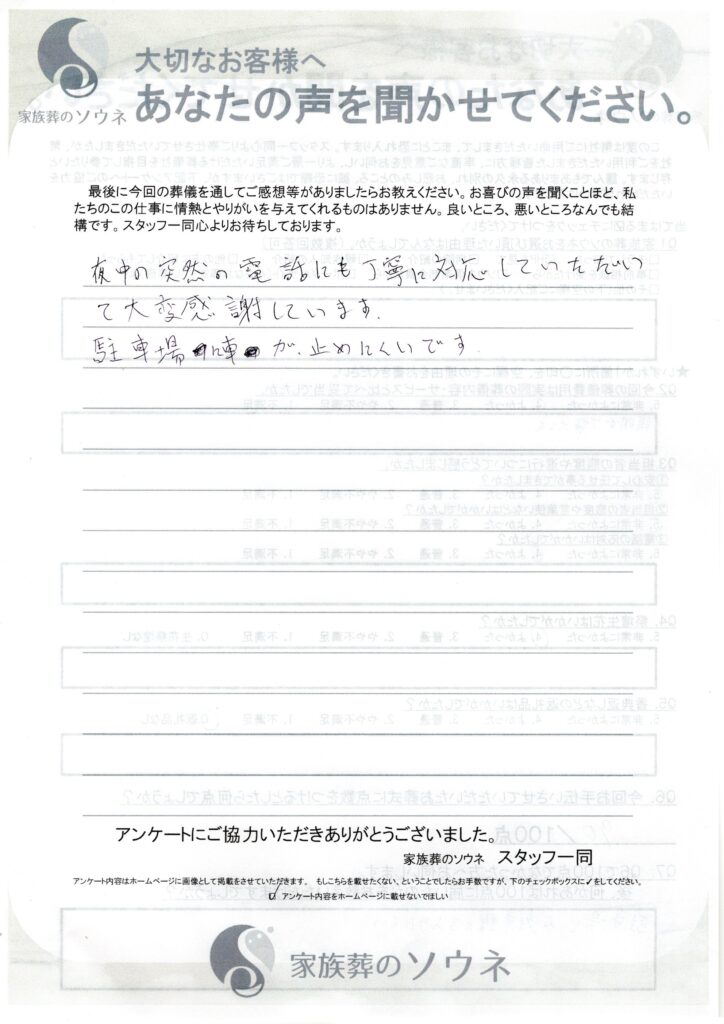 家族葬のソウネ
大切なお客様へ
あなたの声を聞かせてください。
最後に今回の葬儀を通してご感想等がありましたらお教えください。お喜びの声を聞くことほど、私
たちのこの仕事に情熱とやりがいを与えてくれるものはありません。良いところ、悪いところなんでも結
構です。スタッフ一同心よりお待ちしております。
夜中の突然の電話にも丁寧に対応していただい
て大変感謝しています.
駐車場 車 が.止めにくいです.
アンケートにご協力いただきありがとうございました。
家族葬のソウネ スタッフ一同
アンケート内容はホームページに画像として掲載をさせていただきます。 もしこちらを載せたくない、ということでしたらお手数ですが、下のチェックボックスに✓をしてください。
☑ アンケート内容をホームページに載せないでほしい
家族葬のソウネ